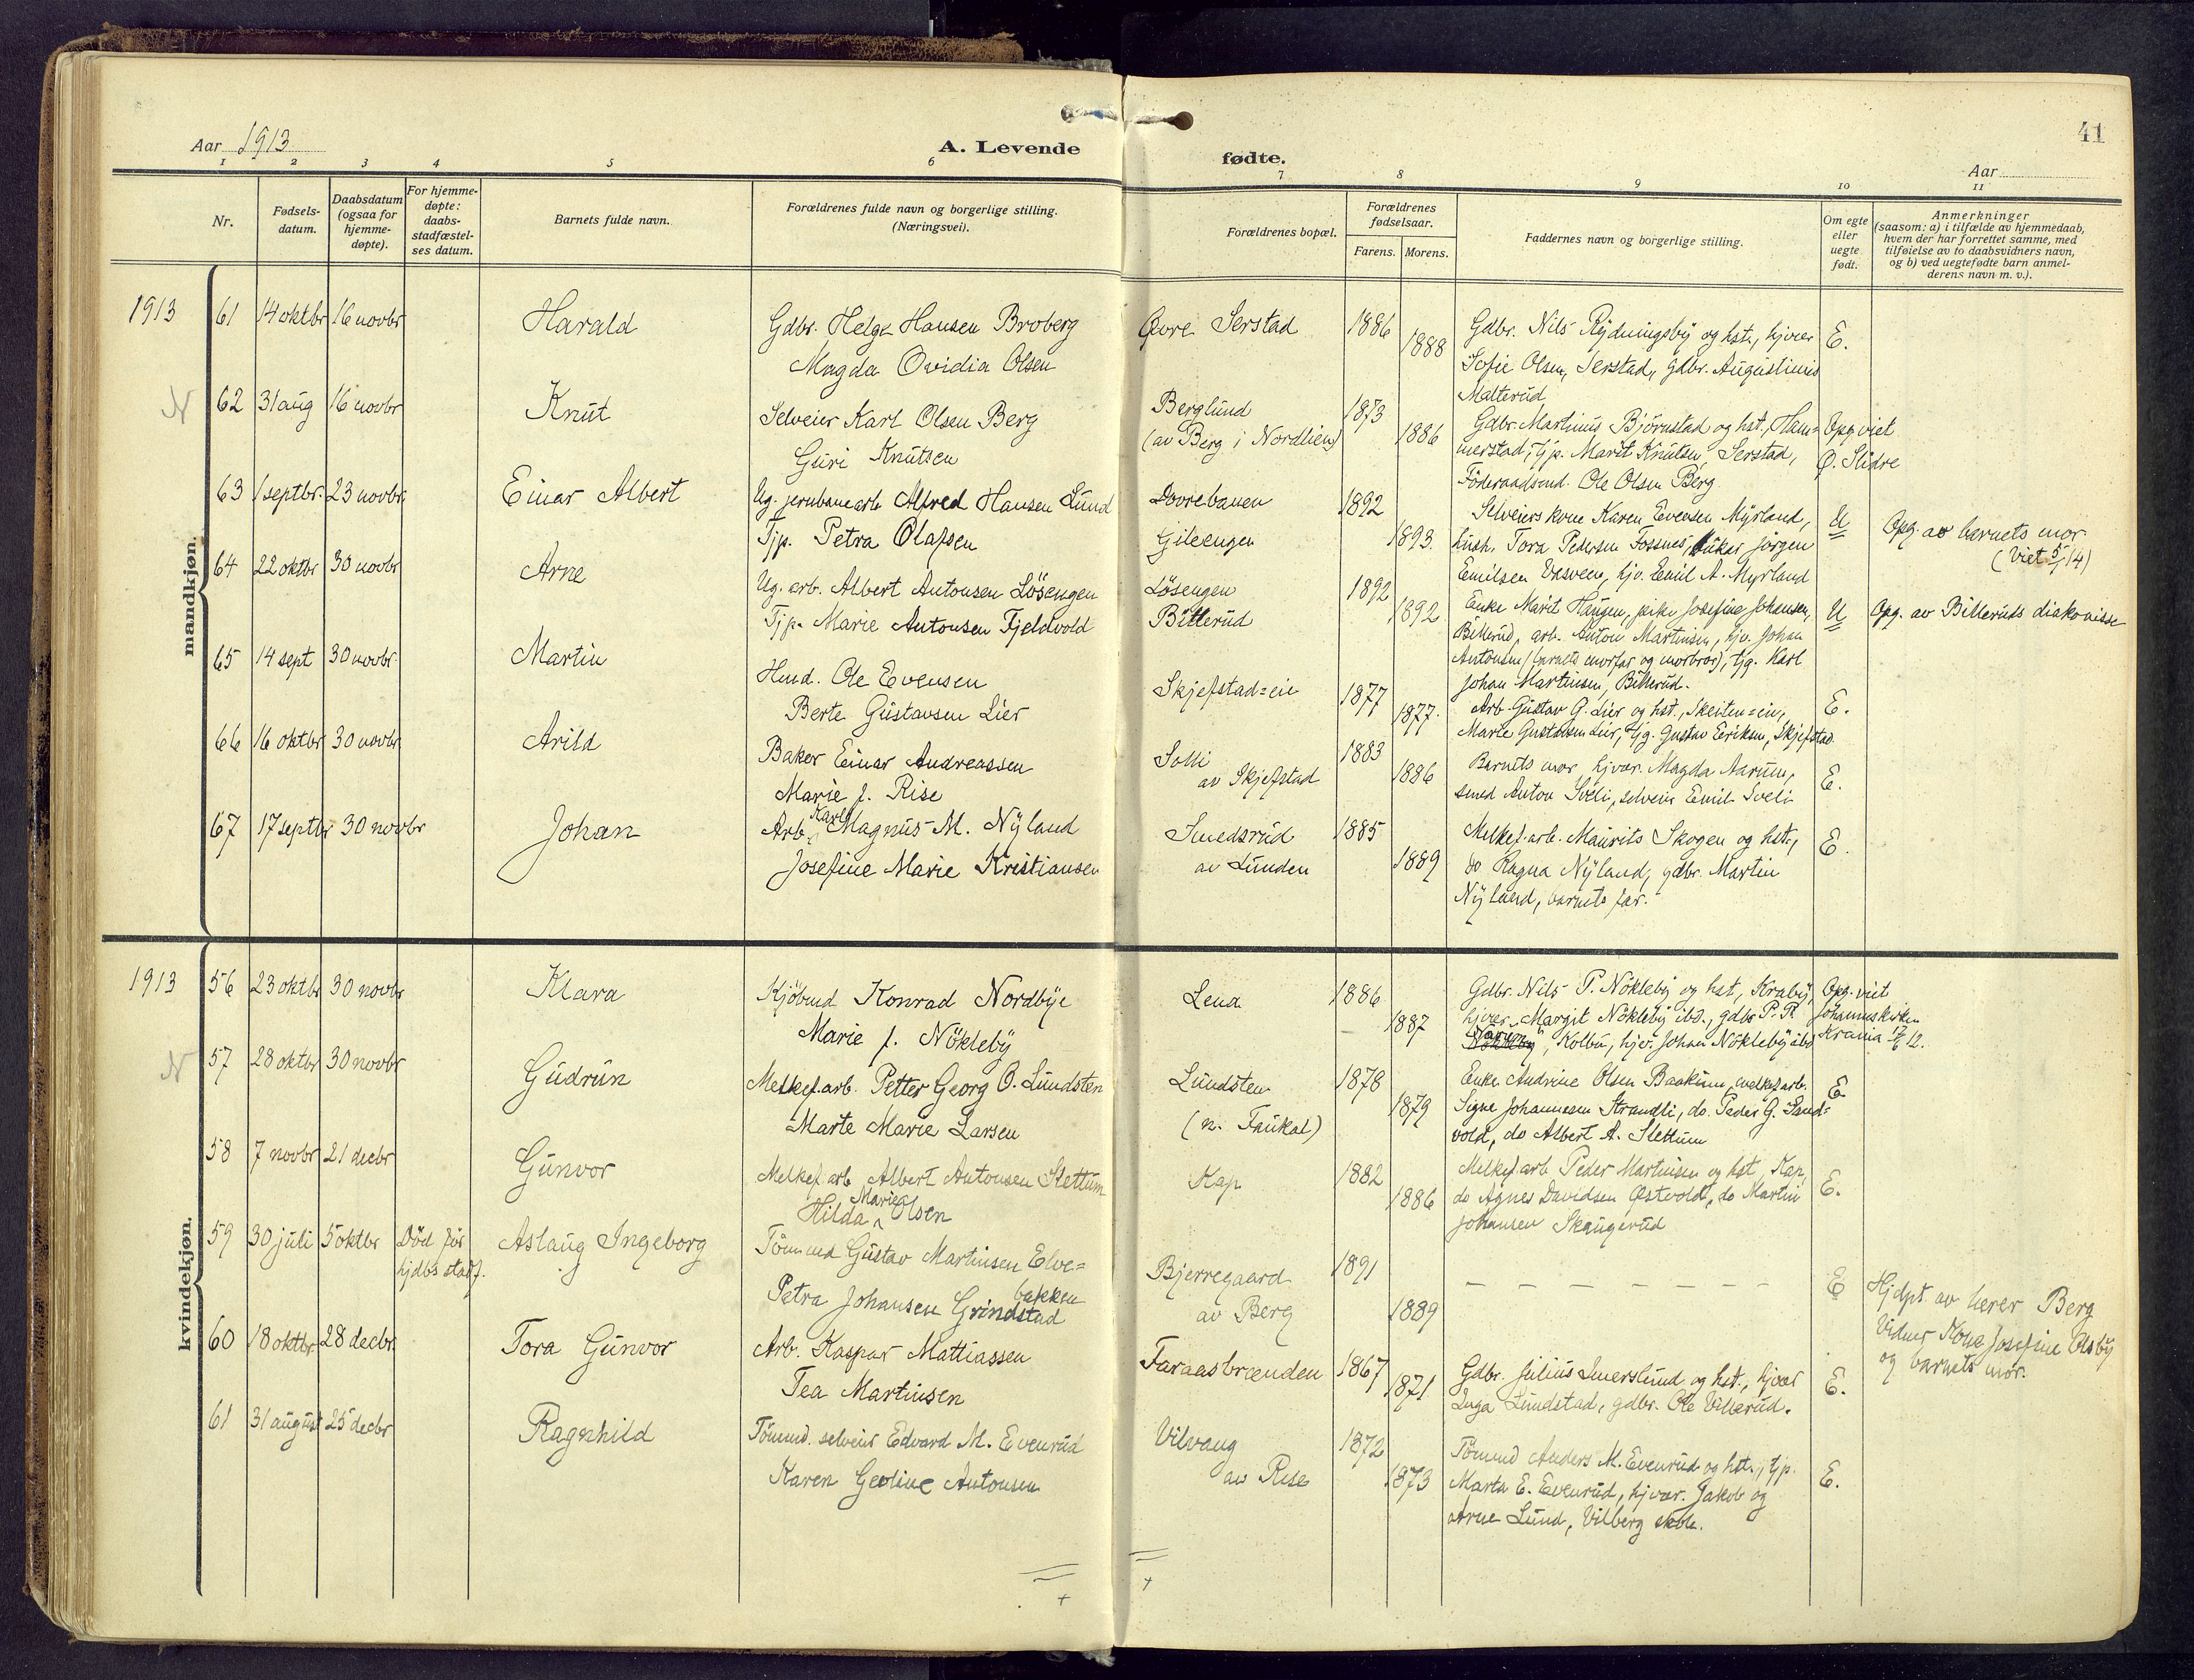 41
Aar 1913
A. Levende
fødte.
Aar
1 2 3 4 5 6 7 8 9 10 11
Nr.
Fødsels-
datum.
Daabsdatum
(ogsaa for
hjemme-
døpte).
For hjemme-
døpte:
daabs-
stadfæstel-
ses datum.
Barnets fulde navn.
Forældrenes fulde navn og borgerlige stilling.
(Næringsvei).
Forældrenes bopæl.
Forældrenes
fødselsaar.
Farens. Morens.
Faddernes navn og borgerlige stilling.
Om egte
eller
uegte
født.
Anmerkninger
(saasom: a) i tilfælde av hjemmedaab,
hvem der har forrettet samme, med
tilføielse av to daabsvidners navn,
og b) ved uegtefødte barn anmel-
derens navn m. v.).
mandkjøn.
1913 61 14 oktbr 16 novbr Harald
Gdbr. Helge Hansen Broberg
Magda Ovidia Olsen
Øvre Serstad 1886
1888
Gdbr. Nils Rydningsby og hst., hjvær
Sofie Olsen, Serstad, gdbr. Augustinus
Malterud
E.
N 62 31 aug 16 novbr Knut
Selveier Karl Olsen Berg
Guri Knutsen
Berglund 1873
(av Berg i Nordlien) 1886
Gdbr. Martinus Björnstad og hst., Ham=
merstad, tjp. Marit Knutsen Serstad,
Föderaadsmd. Ole Olsen Berg
Opg. viet
Ø. Slidre
63 1 septbr. 23 novbr. Einar Albert
Ug. jernbanearb Alfred Hansen Lund
Tjp. Petra Olafsen
Dovrebanen 1892
Gileengen 1893.
Selveierskone Karen Evensen Myrland,
hush. Tora Pedersen Fossnes, Jörgen
Emilsen hjv. Emil A. Myrland
U
Opg. av barnets mor
(Viet 5/1 14)
64 22 oktbr 30 novbr Arne
Ug. arb. Albert Antonsen Lösengen
Tjp. Marie Antonsen Fjeldvold
Lösengen 1892
Billerud 1892
Enke Marit Haugen, pike Josefine Johansen,
Billerud, arb. Anton Martinsen, hjv. Johan
Antonsen (barnets morfar og morbror), tjg. Karl
Johan Martinsen, Billerud.
U
Opg. av Billeruds diakonisse
65 14 sept 30 novbr. Martin
Hmd. Ole Evensen
Berte Gustavsen Lier
Skjefstad=eie 1877
1877.
Arb. Gustav G. Lier og hst., Skeiten=eie,
Marie Gustavsen Lier, tjg. Gustav Eriksen, Skjefstad
E.
66 16 oktbr 30 novbr Arild
Baker Einar Andreassen
Marie f. Rise
Solli 1883
av Skjefstad 1886
Barnets mor hjvær. Magda Aarum,
smed Anton Sveli, selveier Emil Sveli
E.
67 17 septbr 30 novbr Johan
Karl
Arb. Magnus M. Nyland
Josefine Marie Kristiansen
Smedsrud 1885
av Lunden 1889
Melkef.arb. Maurits Skogen og hst.,
do Ragna Nyland, gdbr. Martin
Nyland, barnets far.
E.
kvindekjøn.
1913 56 23 oktbr 30 novbr Klara
Kjöbmd Konrad Nordbye
Marie f. Nökleby
Lena 1886
1887
Gdbr. Nils P. Nökleby og hst, Kraby,
hjvær Margit Nökleby ibd., gdbr P. R.
Kolbu, hjv. Johan Nökleby ibd
Opg. viet
Johanneskirken
Krania 12.
N 57 28 oktbr 30 novbr Gudrun
Melkef.arb. Petter Georg O. Lundsten
Marte Marie Larsen
Lundsten 1878
(n. Faukal) 1879
Enke Andrine Olsen Baakum, melkef.arb.
Signe Johannesen Strandli, do. Peder G. Sand=
vold, do Albert A. Slettum
E
58 7 novbr 21 decbr Gunvor
Melkef.arb Albert Antonsen Slettum
Marie
Hilda Olsen
Kap 1882
1886
Melkef.arb Peder Martinsen og hst, Kap,
do Agnes Davidsen Østvold, do Martin
Johansen Skaugerud
E.
59 30 juli 5 oktbr Död för
hjdbs stadf.
Aslaug Ingeborg
Tömmd Gustav Martinsen Elve=
bakken
Petra Johansen Grindstad
Bjerregaard 1891
av Berg 1889
— — — — — — —
E
Hjdpt. av lærer Berg
Vidner Kone Josefine Olsby
og barnets mor.
60 18 oktbr 28 decbr. Tora Gunvor
Arb. Kaspar Mattiassen
Tea Martinsen
Faraasbrænden 1867
1871.
Gdbr. Julius Smerslund og hst., hjvær
Inga Lundstad, gdbr. Ole Villerud.
E.
61 31 august 25 decbr Ragnhild
Tömmd. selveier Edvard M. Evenrud
Karen Gevline Antonsen
Vilvang 1872
av Rise 1873
Tömmd Anders M. Evenrud og hst., tjp.
Marta E. Evenrud, hjvær. Jakob og
Arne Lund, Vilberg skole.
E.